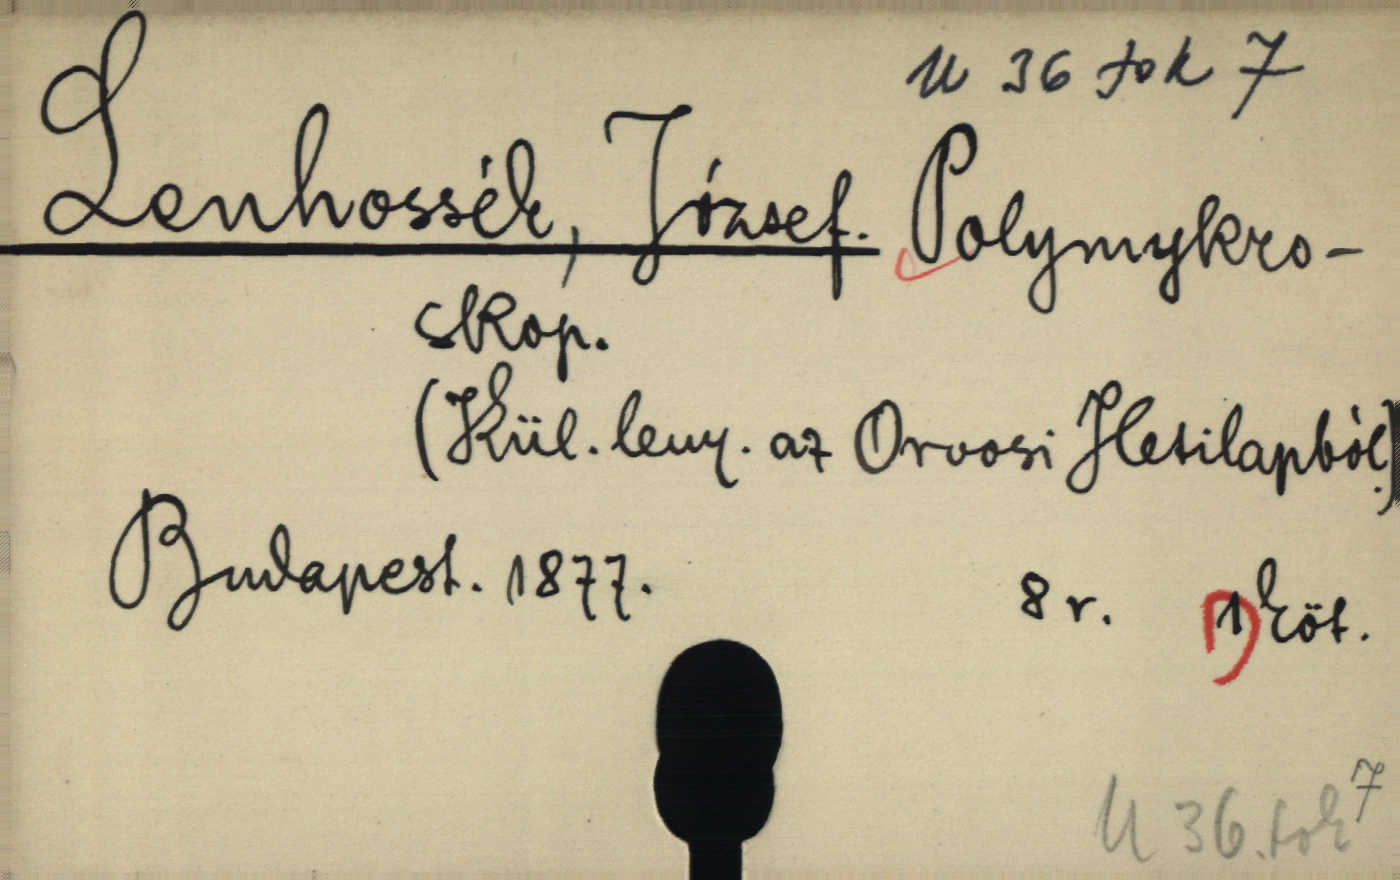 U 36 tok 7
Lenhossék, József. Polymykro-
skop.
(Kül. leny. az Orvosi Hetilapból.)
Budapest. 1877. 8 r. 1 köt.
U 36. tok 7